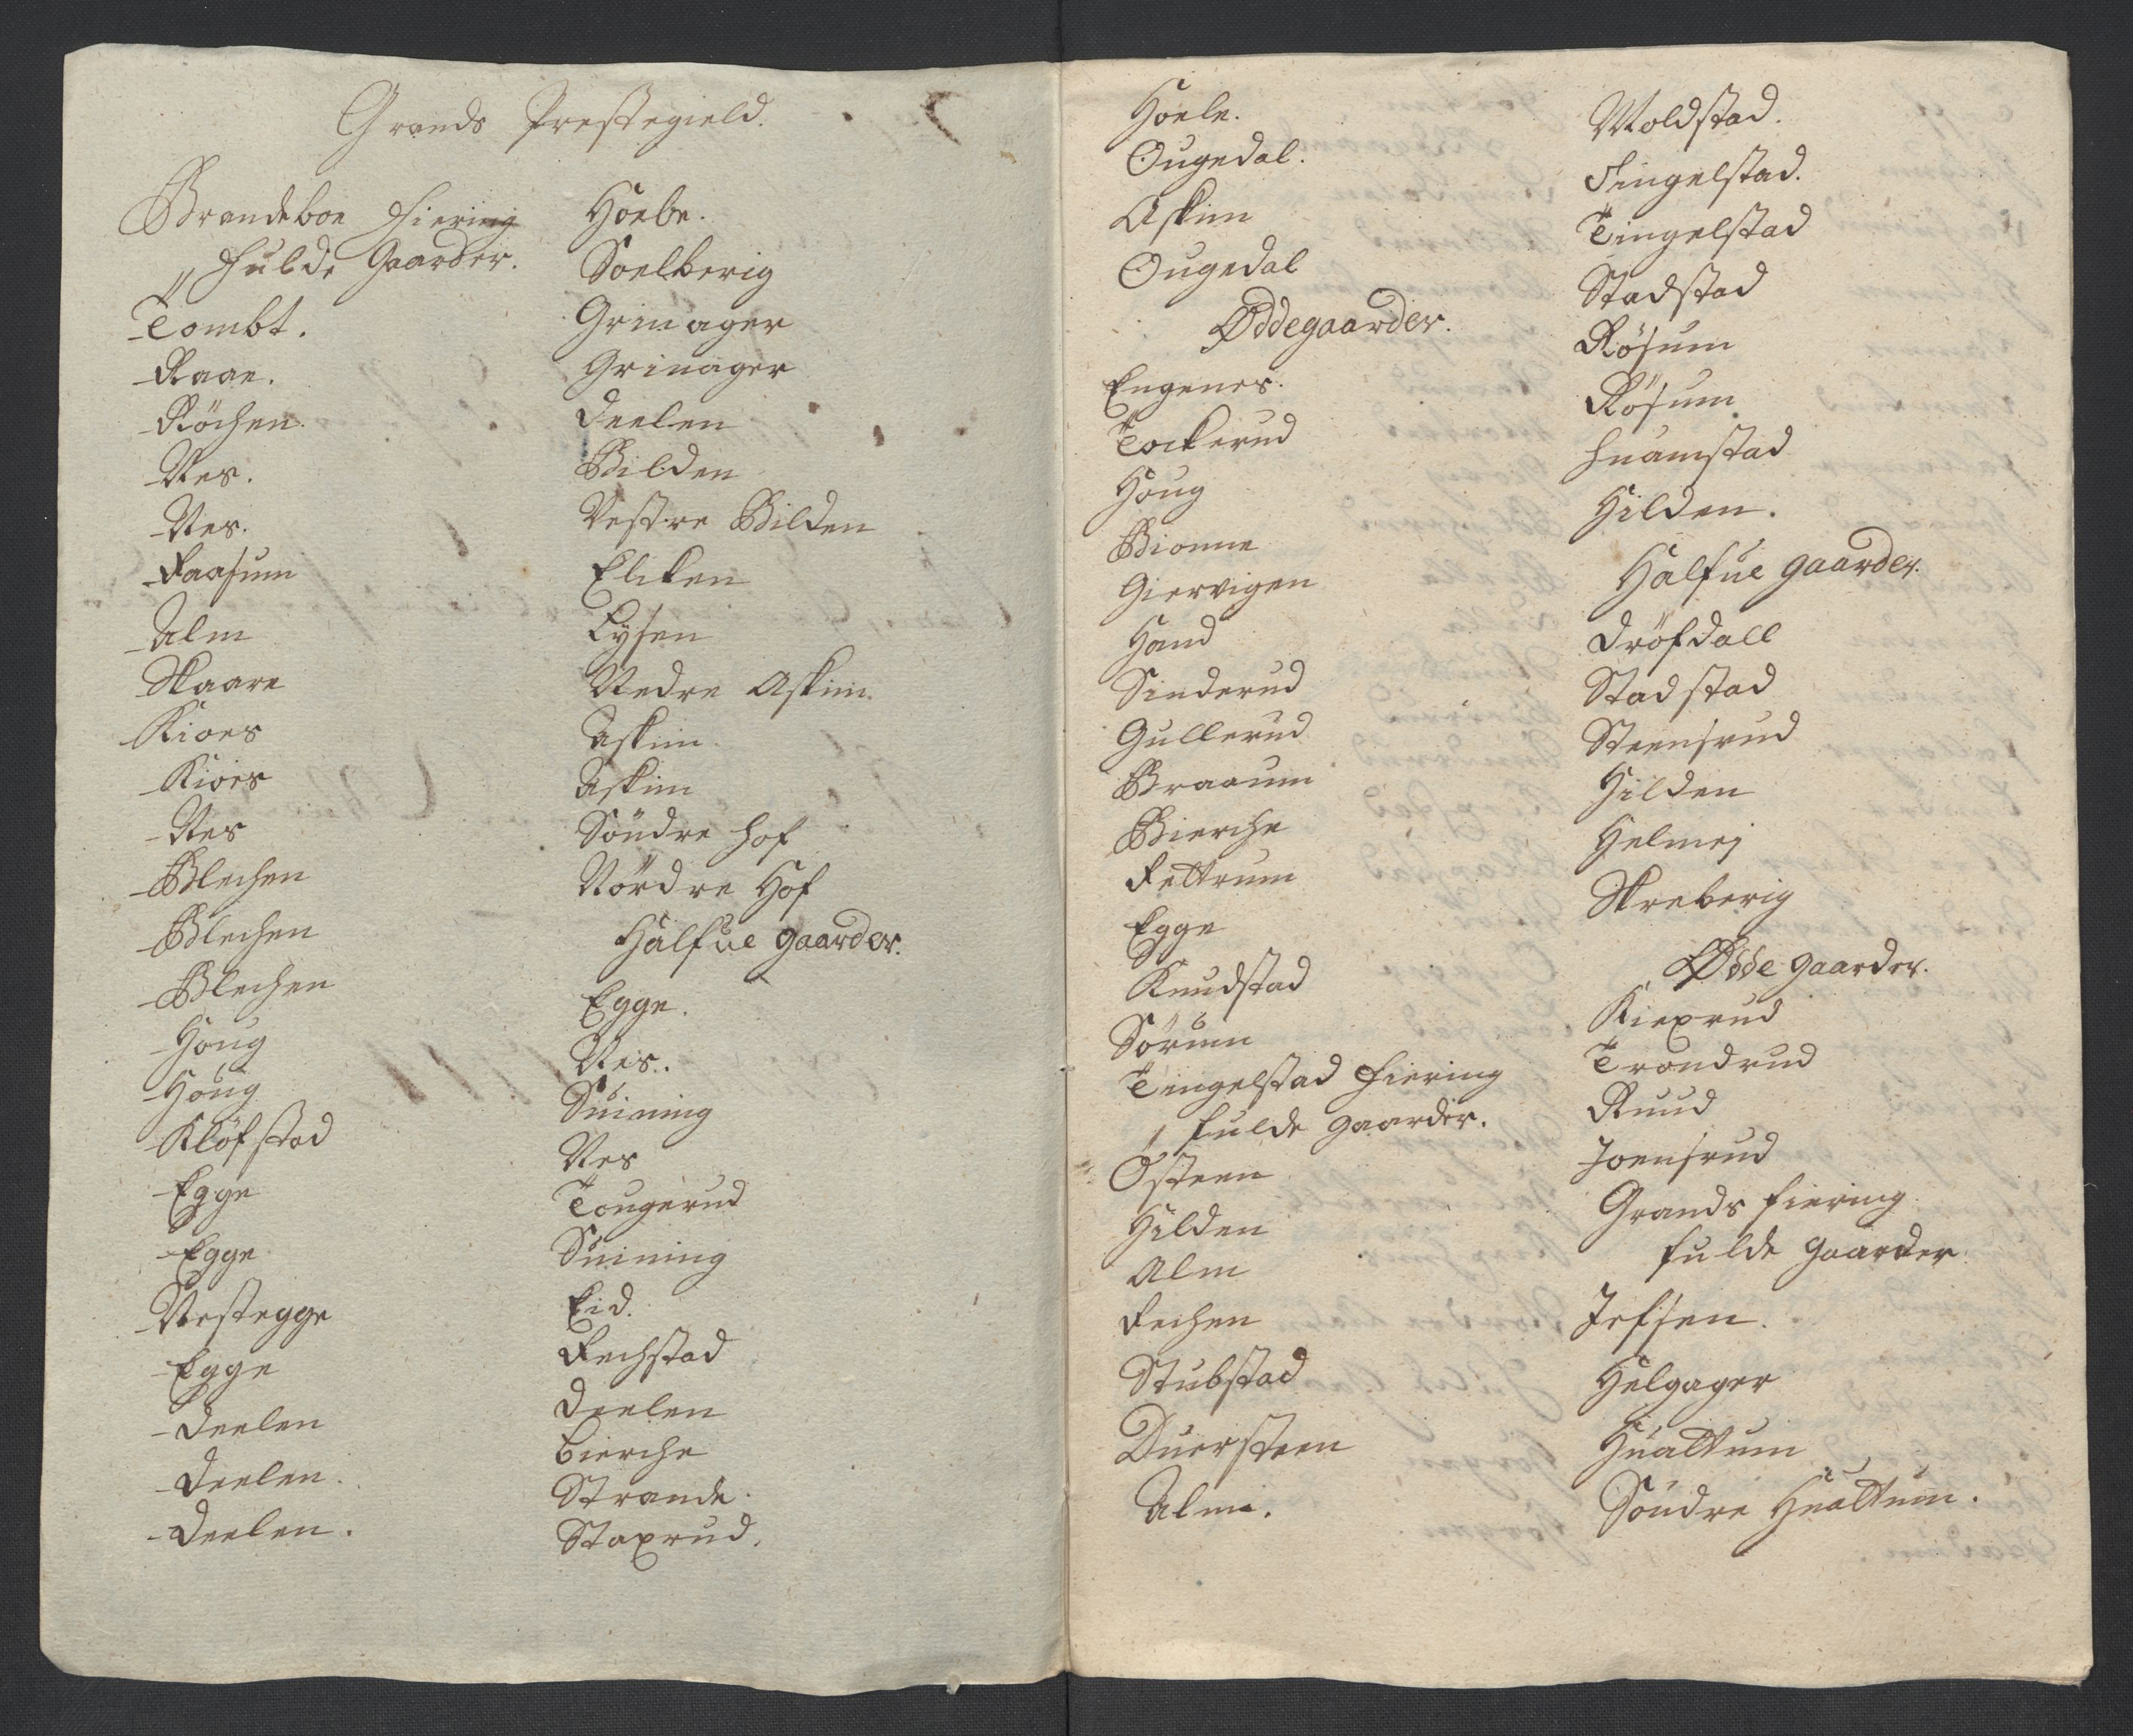 Grands Prestegield.
Brandeboe Fiering
Fulde Gaarder.
Tombt.
Raae.
Röchen.
Nes.
Nes.
Raasum
Alm
Skaare
Kioes
Kioes
Nes
Blechen
Blechen
Blechen
Houg
Houg
Klöfstad
Egge
Egge
Vestegge
Egge
Deelen
Deelen.
Deelen.
Hoebe.
Soelberig
Grinager
Grinager
Deelen
Bilden
Vestre Bilden
Elken
Lysen
Nedre Askim.
Askim
Askim
Söndre Hof
Nördre Hof
Halfue gaarder.
Egge.
Nes.
Suining
Nes
Tougerud
Suining
Eid.
Rechstad
Deelen
Bierche
Strande.
Staxrud.
Hoele.
Ougedal.
Askim
Ougedal
Øddegaarder.
Engenes.
Tockerud
Houg
Bionne
Giervigen
Hand
Sinderud
Gullerud
Braaum
Bierche
Rettrum
Egge
Knudstad
Sörum
Tingelstad Fiering
fulde gaarder.
Östeen
Hilden
Alm
Rechen
Stubstad
Duersteen
Alm.
Moldstad.
Fingelstad.
Tingelstad
Stadstad
Rösum
Rösum
Huamstad
Hilden.
Halfue gaarder.
Dröfdall
Stadstad
Steensrud
Hilden
Helmej
Skreberig
Ødde gaarder.
Kiexrud
Trondrud
Ruud
Joensrud
Grands fiering
fulde Gaarder
Jefsen.
Helgager
Huattum
Söndre Huattum.